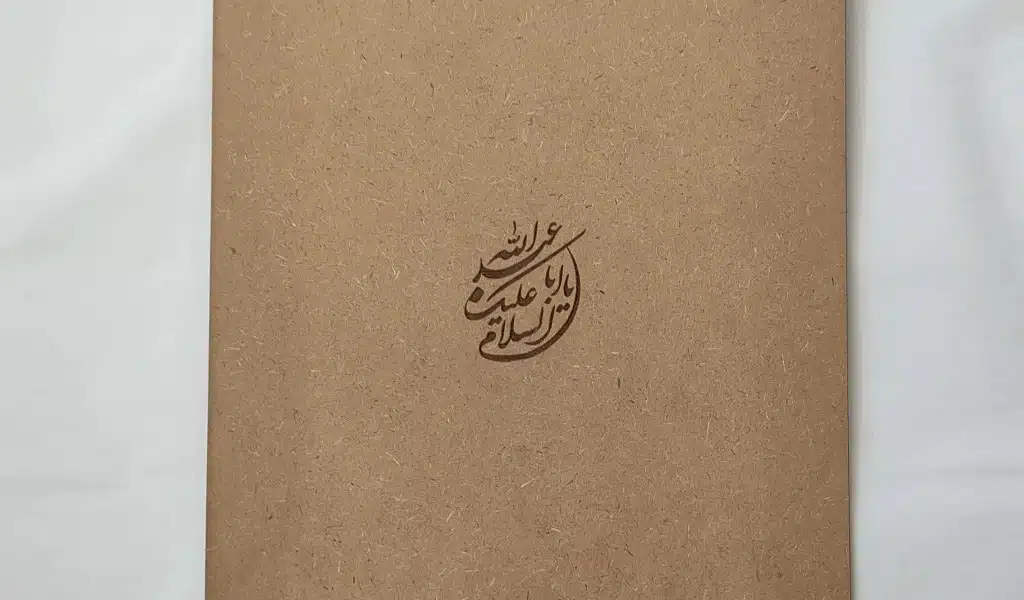 السلام علیک یا ابا عبدالله